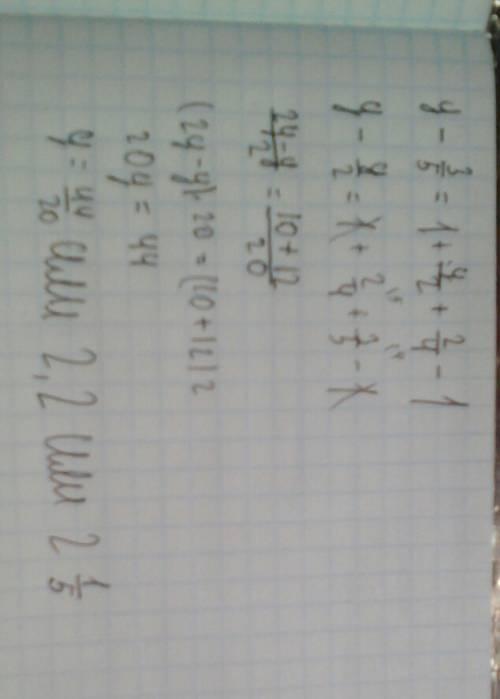 y - 3/5 = 1 + y/2 + 2/4 - 1
y - y/2 = 1 + 2/4 + 3/5 - 1
2y-y/2 = 10+12/20
(2y-y)·20 = (10+12)2
20y = 44
y = 44/20 или 2,2 или 2 1/5